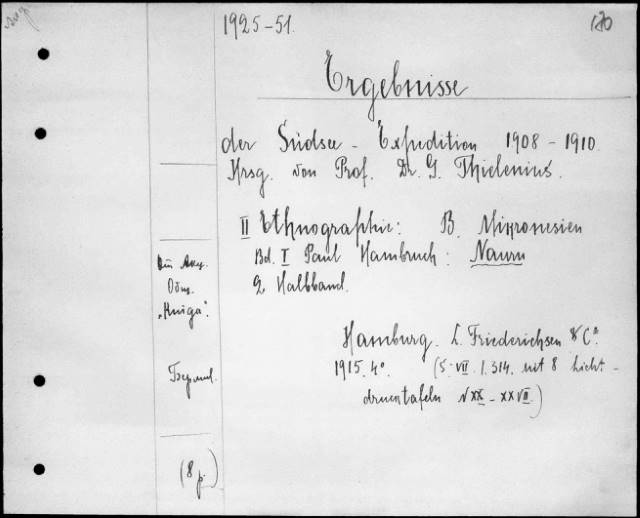 1925-51.
170
Ergebnisse
der Südsee - Expedition 1908 - 1910.
Hrsg. von Prof. Dr. G. Thielenius.
II Ethnographie: B. Mikronesien
Bd. I Paul Hambruch: Nauru
2 Halbband.
Общ.
"Kniga".
Hamburg. L. Friederichsen & Cº
1915. 4º. (S. VII. 1. 314. mit 8 Licht-
drucktafeln
(8 p.)